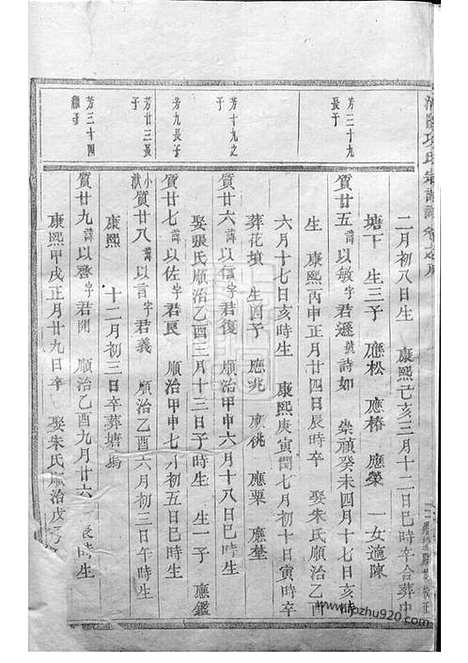 項氏宗譜
二月初八日生 康熙己亥三月十二日巳時卒合葬中
塘下 生三子 應松 應椿 應榮 一女適陳
芳三十九長子
質廿五諱以敏字君遜 詩如 崇禎癸未四月十七日亥時
生 康熙丙申正月廿四日辰時卒 娶朱氏順治乙酉
六月十七日亥時生 康熙庚寅閏七月初十日寅時卒
葬花墳 生四子 應兆 應姚 應粟 應埜
芳十九之子
質廿六諱以信字君復 順治甲申六月十八日巳時生
娶張氏順治乙酉三月十三日子時生 生一子 應鑑
芳九長子
質廿七諱以佐字君良 順治甲申七月初五日巳時生
芳廿三長子
質廿八諱以言字君義 順治乙酉六月初三日午時生
康熙 十二月初三日卒葬塘塢
芳三十四繼子
質廿九諱以賚字君開 順治乙酉九月廿六 辰時生
康熙甲戌正月廿九日卒 娶朱氏順治戊子
zhu920.com